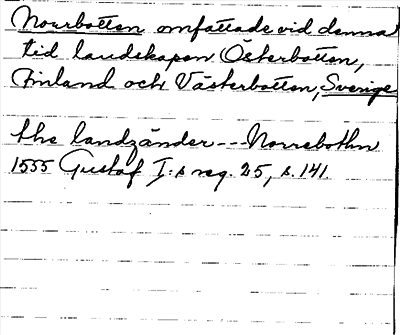 Nourbotten omfattade vid denna
tid landskapen Österbotten,
Finland och Västerbotten, Sverige
the landzänder -- Norrebothn
1555 Gustaf I:s reg. 25, s. 141.